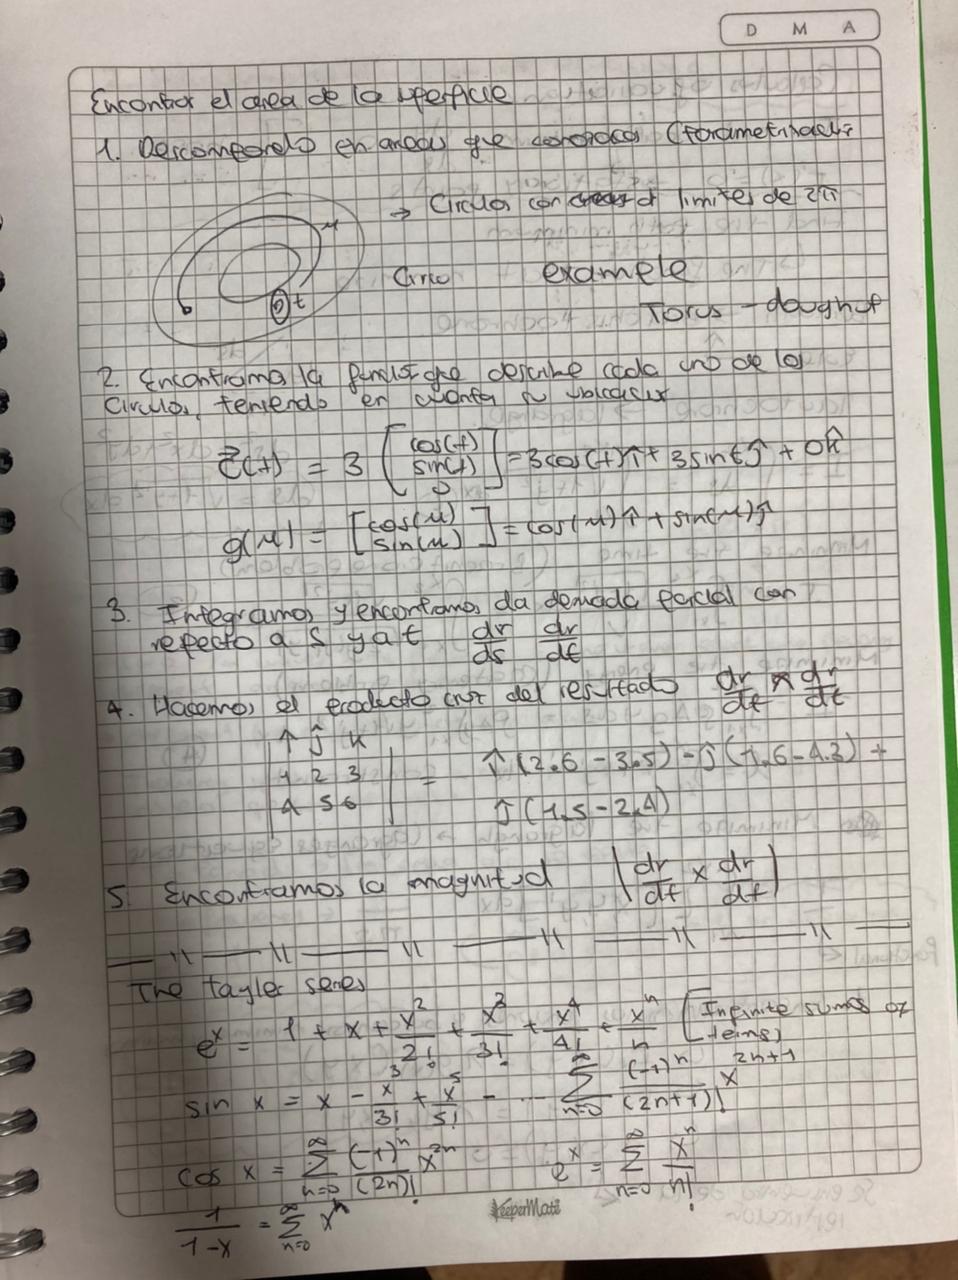 D M A
Encontrar el area de la superficie
1. Descomponerlo en areas que conozcas (Parametrizacion
→ Circulos con limites de 2π
u
t
Circulo example
Torus - doughnut
2. Encontramos la funcion que describe cada uno de los
circulos, teniendo en cuenta su ubicacion
c⃗(t) = 3 [cos(t) sin(t) 0] = 3cos(t)î + 3sintĵ + 0k̂
g(u) = [cos(u) sin(u)] = cos(u)î + sin(u)ĵ
3. Integramos y encontramos da derivada parcial con
respecto a s y a t dr/ds dr/dt
4. Hacemos el producto cruz del resultado dr/dt × dr/dt
| î ĵ k |
| 1 2 3 | = î(2.6 - 3.5) - ĵ(1.6 - 4.3) +
| 4 5 6 | ĵ(1.5 - 2.4)
5. Encontramos la magnitud |dr/dt × dr/dt|
The tayler series
e^x = 1 + x + x^2/2! + x^3/3! + x^4/4! + x^n/n [Infinite sums of
terms)
sin x = x - x^3/3! + x^5/5! - ... ∑_{n=0}^{∞} (-1)^n/(2n+1)! x^{2n+1}
cos x = ∑_{n=0}^{∞} (-1)^n/(2n)! x^{2n} e^x = ∑_{n=0}^{∞} x^n/n!
KeeperMate
1/(1-x) = ∑_{n=0}^{∞} x^n